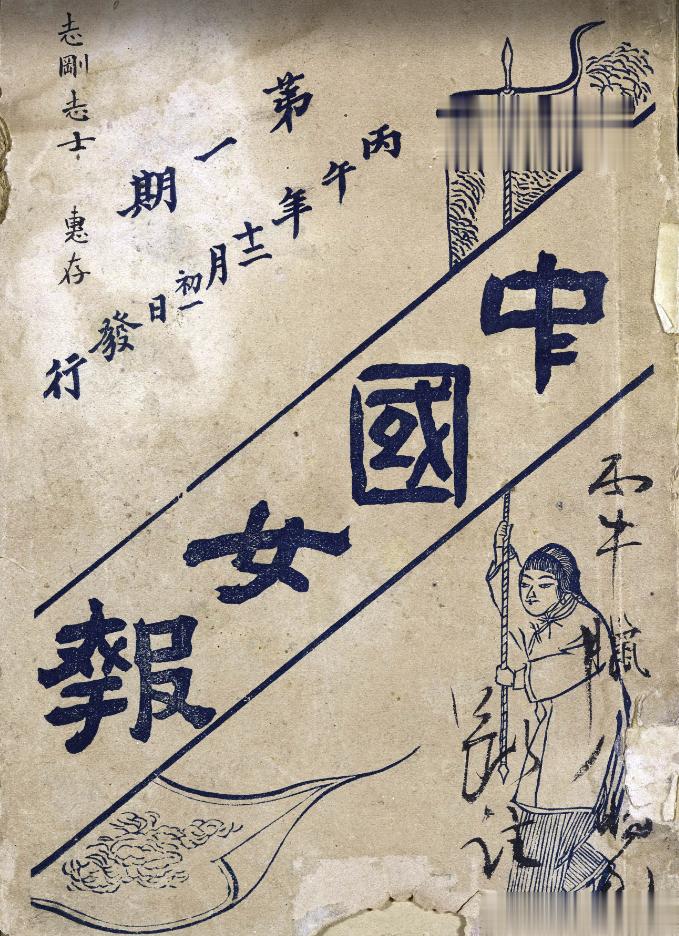 志剛志士 惠存
第一期
丙午年十二月初一日發行
中國女報
丙午臘